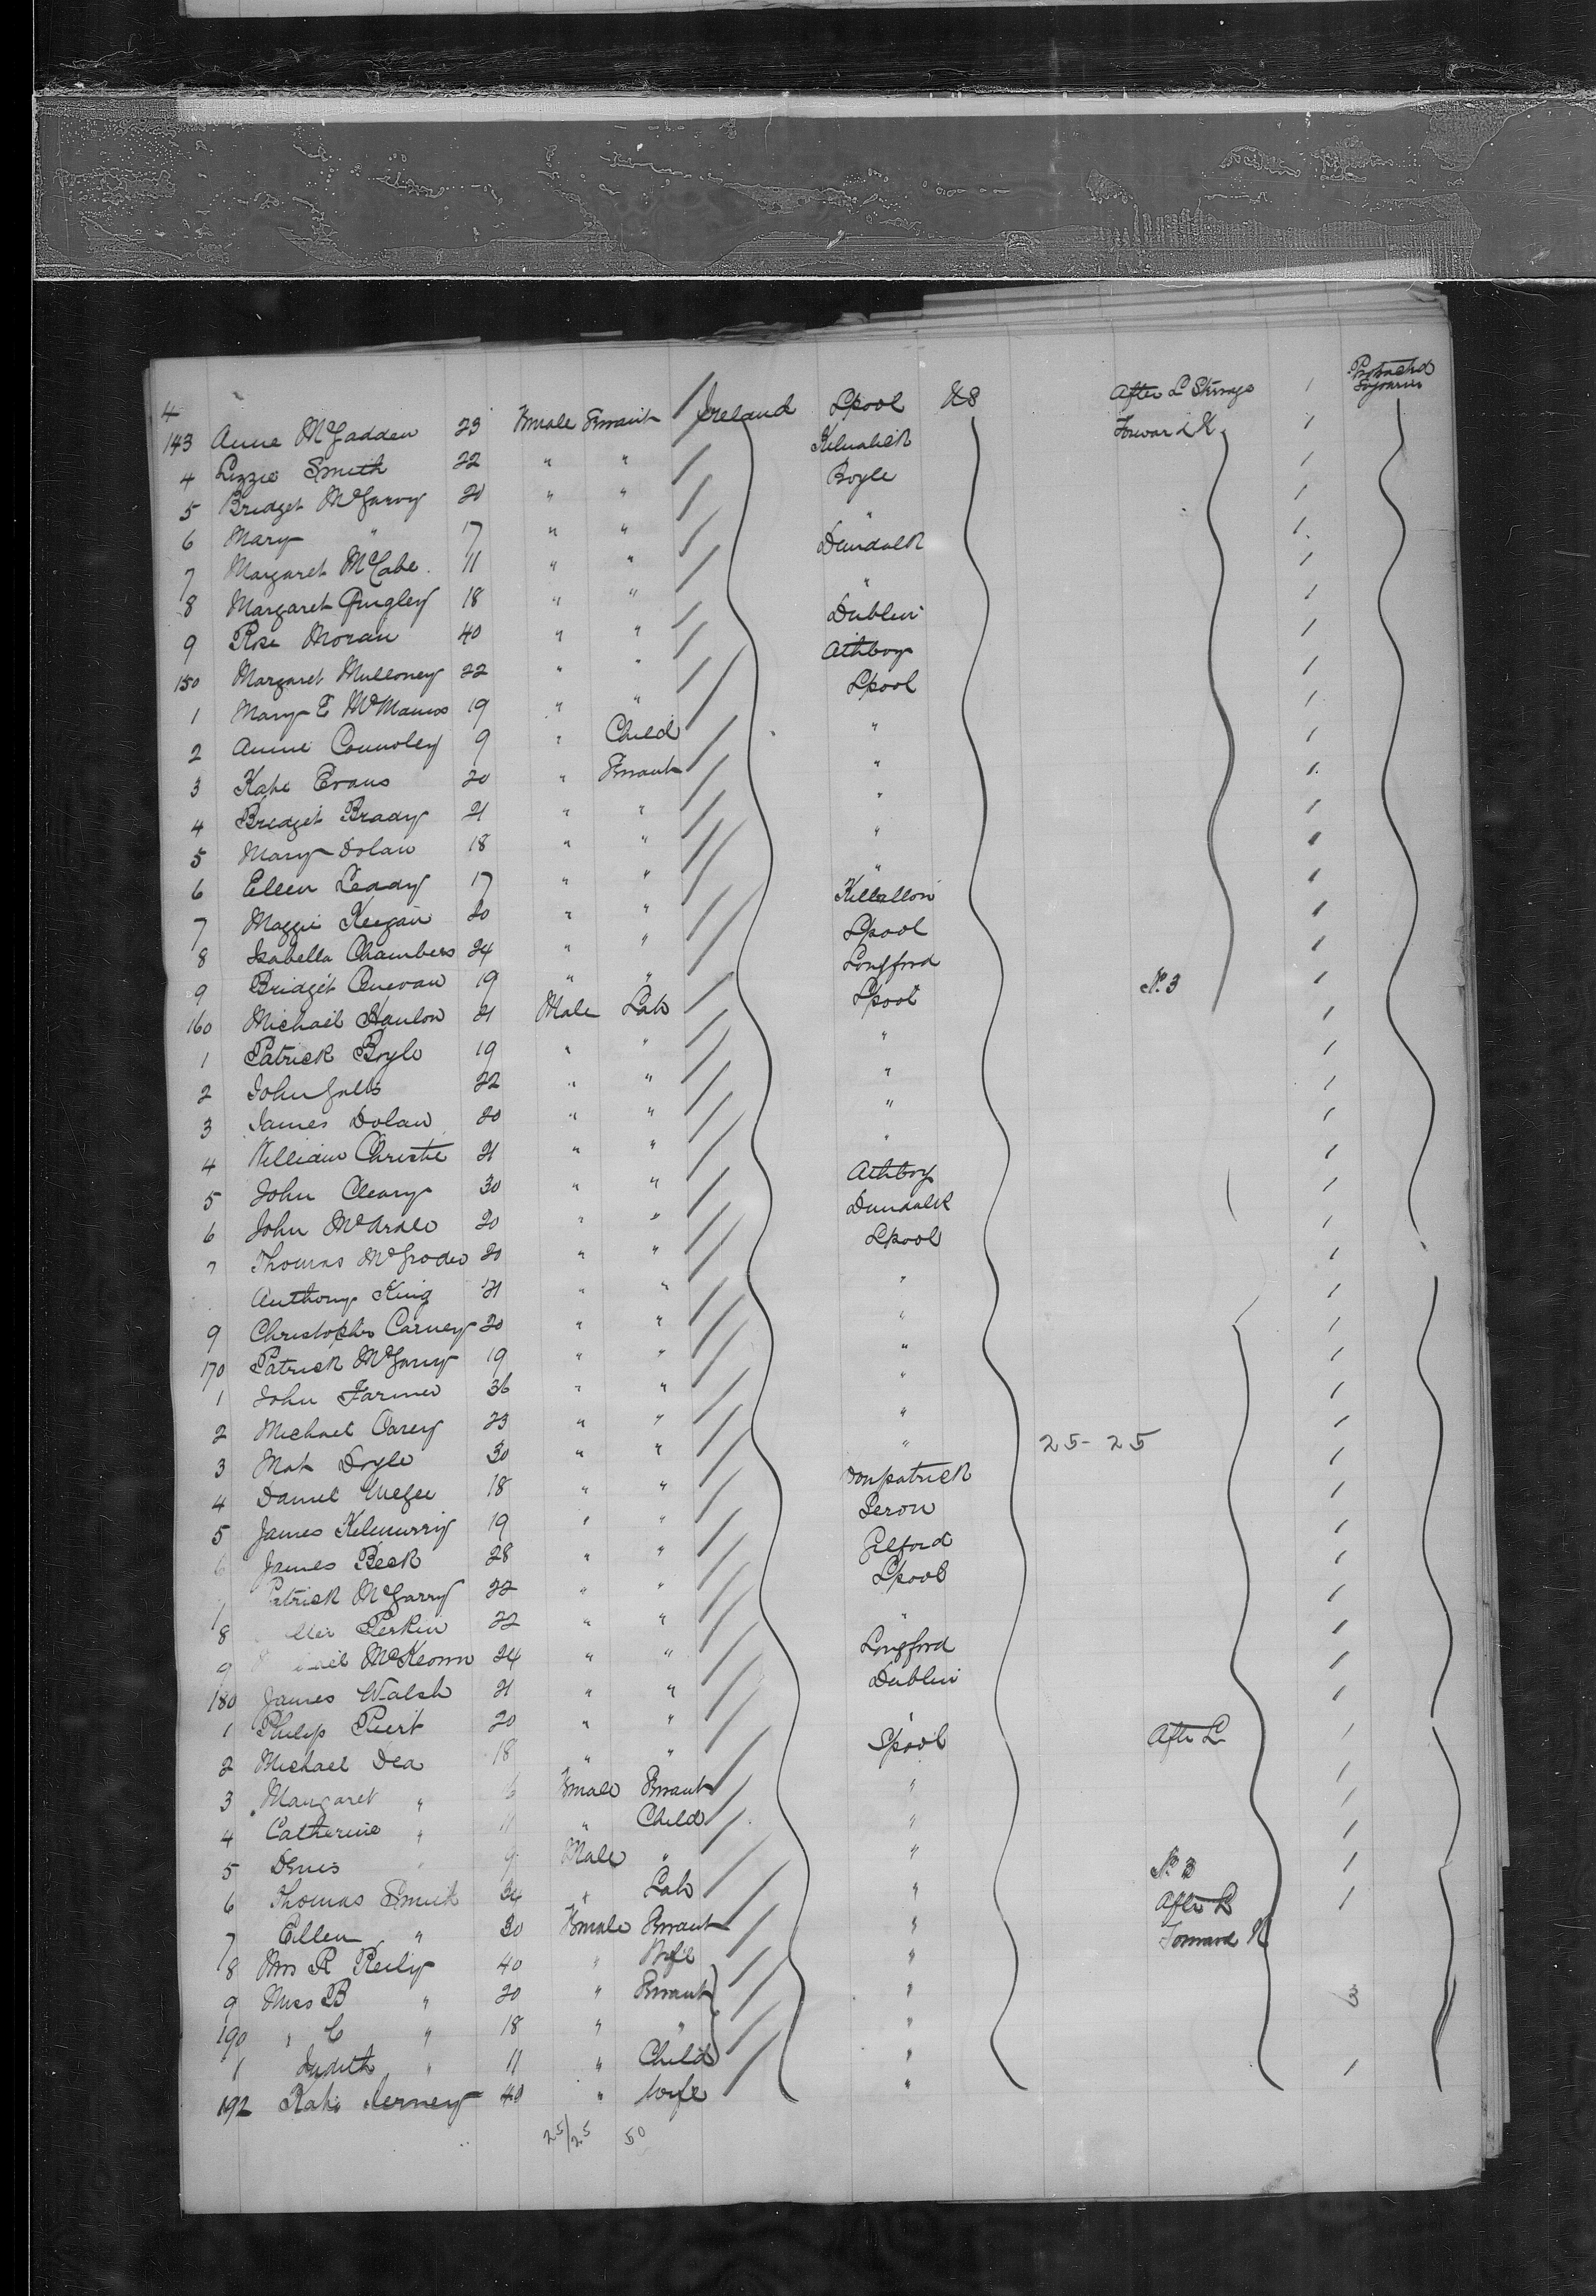 4
143 Anne McFadden 23 Female Servant Ireland Lpool US After L Steerage 1 Protracted Sojourner
4 Lizzie Smith 22 " " Forward K 1
5 Bridget McGarvy 20 " " Boyle 1
6 Mary " 17 " " " 1
7 Margaret McCabe 11 " " Dundalk 1
8 Margaret Quigley 18 " " " 1
9 Rose Moran 40 " " Dublin 1
150 Margaret Mulloney 22 " " Athboy 1
1 Mary E McManus 19 " " Lpool 1
2 Annie Connoley 9 " Child " 1
3 Kate Evans 20 " Servant " 1
4 Bridget Brady 21 " " " 1
5 Mary Dolan 18 " " " 1
6 Ellen Leady 17 " " " 1
7 Maggie Keegan 20 " " Killallon 1
8 Isabella Chambers 24 " " Lpool 1
9 Bridget 19 " " Longford 1
160 Michael Hanlon 21 Male Lab Lpool No. 3 1
1 Patrick Boyle 19 " " " 1
2 John 22 " " " 1
3 James Dolan 20 " " " 1
4 William Christie 21 " " " 1
5 John Cleary 30 " " Athboy 1
6 John McArdle 20 " " Dundalk 1
7 Thomas 20 " " Lpool 1
Anthony King 21 " " " 1
9 Christopher Carney 20 " " " 1
170 Patrick McGarry 19 " " " 1
1 John Farmer 36 " " " 1
2 Michael Carey 23 " " " 1
3 Mat Doyle 30 " " " 25-25 1
4 Daniel McGee 18 " " Donpatrick 1
5 James Kilmurry 19 " " 1
6 James Beck 28 " " Gilford 1
Patrick McGarry 22 " " Lpool 1
8 Perkin 22 " " " 1
9 McKeown 24 " " Longford 1
180 James Walsh 21 " " Dublin 1
1 Philip 20 " " " 1
2 Michael Dea 18 " " Lpool After L 1
3 Margaret " 6 Female Servant " 1
4 Catherine " 11 " Child " 1
5 Denis " 9 Male " " 1
6 Thomas Smith 34 " Lab " No. 3 1
7 Ellen " 30 Female Servant " After L 1
8 Mrs R Reily 40 " Wife " Forward K
9 Miss B " 20 " Servant "
190 " C " 18 " " " 3
1 Judith " 11 " Child "
192 Kate 40 " Wife " 1
25/25 50